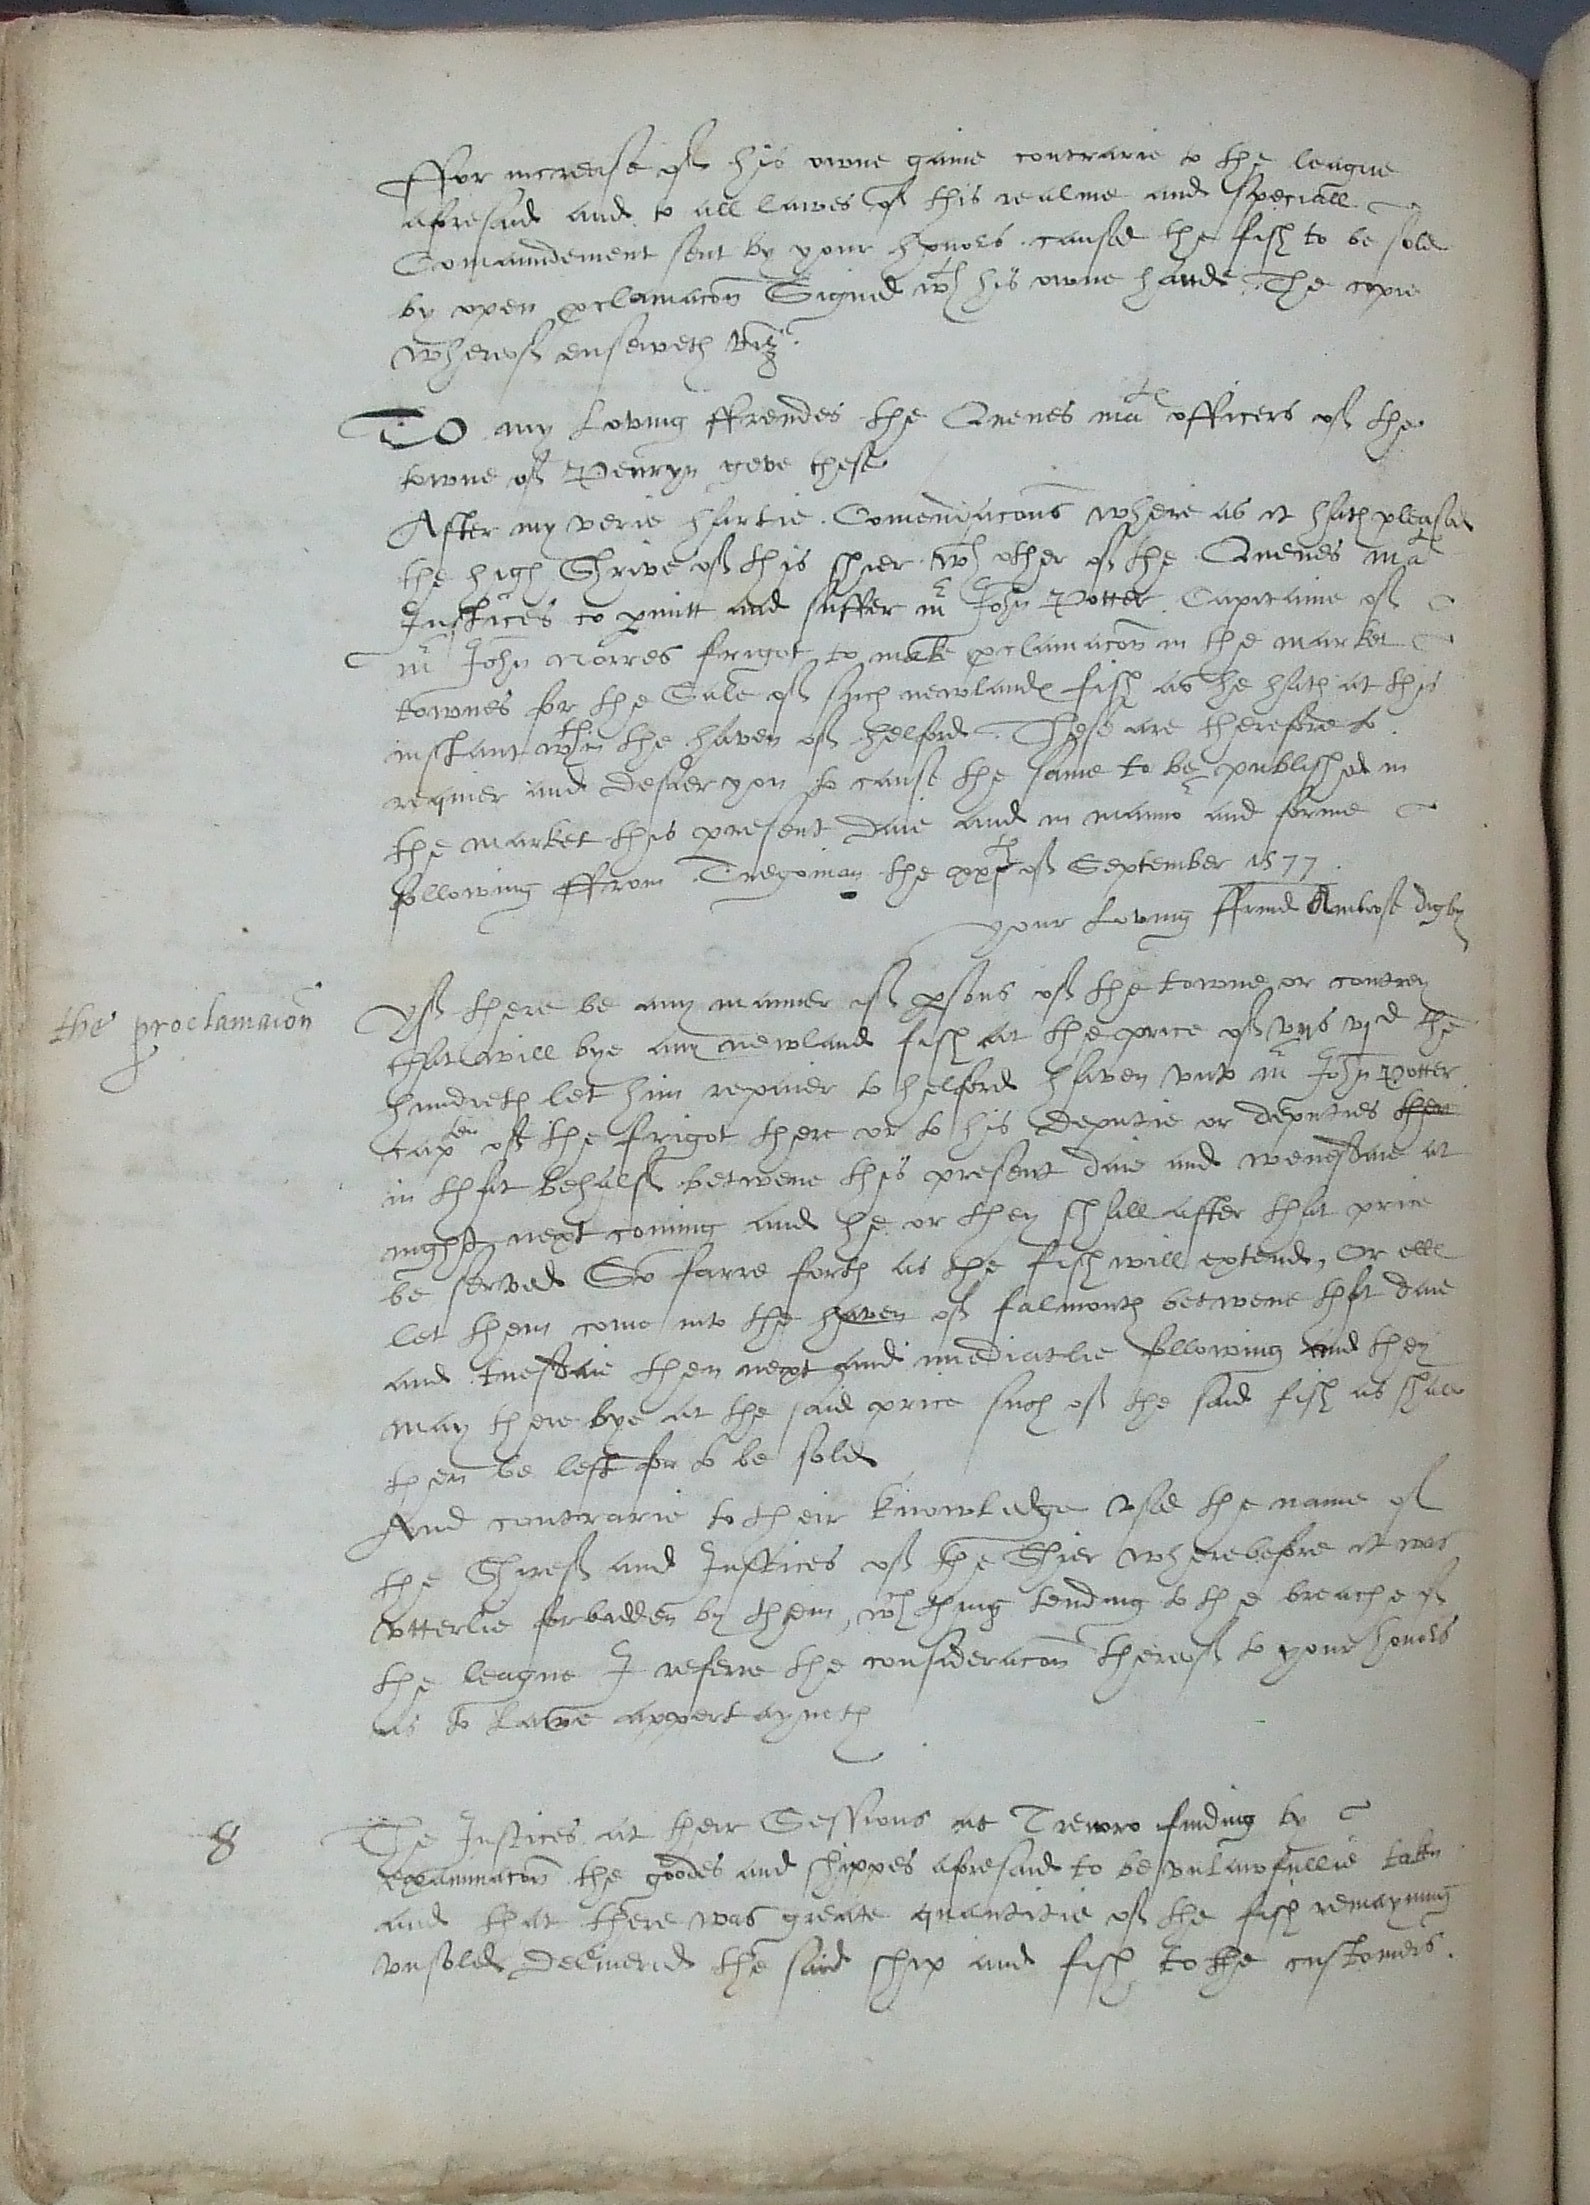 ffor increase of his owne gaine contrarie to the league
aforesaid and to all lawes of this realme and speciall
Comaundement sent by your honors caused the fish to be sold
by open pclamacon Signed wth his owne hande. The copie
whereof enseweth viz.
TO my loving ffrendes the Quenes matie officers of the
towne of Penryn geve these
After my verie hartie Comendacons where as it hath pleased
the high Shrive of this shier wth other of the Quenes matie
Justices to pmitt and suffer mr John Potter Capitaine of
mr John norres frigot to make pclamacon in the market
townes for the Sale of such newland fish as he hath at this
instant wthin the haven of helford. These are therefore to
requier and desier you to cause the same to be published in
the market this present daie and in manner and forme
following ffrom Tregoinan the xxjth of September 1577.
your loving ffrind Ambrose digby
the proclamaion
Yf there be any manner of psons of the towne or contrey
that will bye any newland fish at the price of vijs vjd the
hundreth let him repaier to helford haven vnto mr John Potter
capten of the frigot there or to his deputie or deputies ther
in that behalf betwene this present daie and wenesdaie at
nyght next coming and he or they shall after that price
be served So farre forth as the fish will extend, Or ells
let them come into the haven of falmouth betwene that daie
and tuesdaie then next and imediatlie following and they
may there bye at the said price such of the said fish as shall
then be left for to be sold
And contrarie to their knowledge vsed the name of
the Shiref and Justices of the Shier where before it was
vtterlie forbidden by them, wch thing tending to the breache of
the league I referre the consideracon thereof to your honors
as to lawe appertayneth
8
The Justices at their Sessions at Trewro finding by
examinacon the goodes and shippes aforesaid to be vnlawfullie taken
and that there was greate quantitie of the fish remayning
vnsold delivered the said ship and fish to the customers.